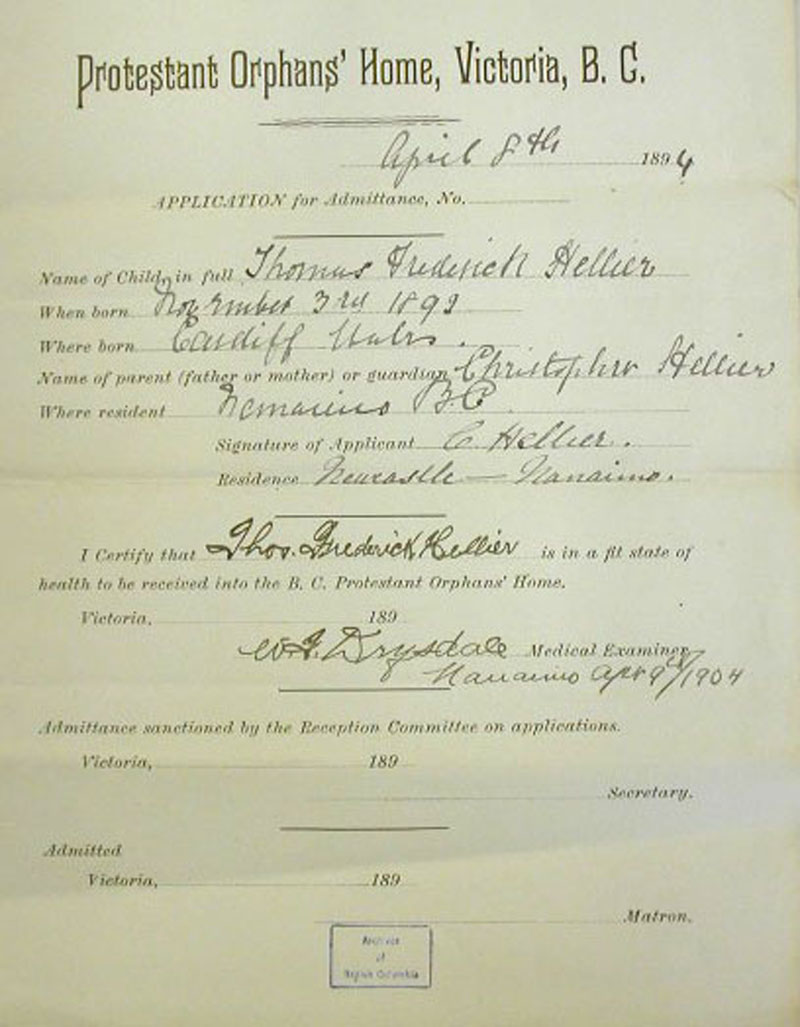 Protestant Orphans' Home, Victoria, B. C.
April 8th 1894
APPLICATION for Admittance, No.
Name of Child, in full Thomas Frederick Hellier
When born November 3rd 1892
Where born Cardiff Wales.
Name of parent (father or mother) or guardian Christopher Hellier
Where resident BC
Signature of Applicant C Hellier.
Residence Newcastle — Nanaimo.
I Certify that Thos. Frederick Hellier is in a fit state of
health to be received into the B. C. Protestant Orphans' Home.
Victoria, 189
Drysdale Medical Examiner
Nanaimo Apr 9th/1904
Admittance sanctioned by the Reception Committee on applications.
Victoria, 189
Secretary.
Admitted
Victoria, 189
Matron.
Archives
of
British Columbia